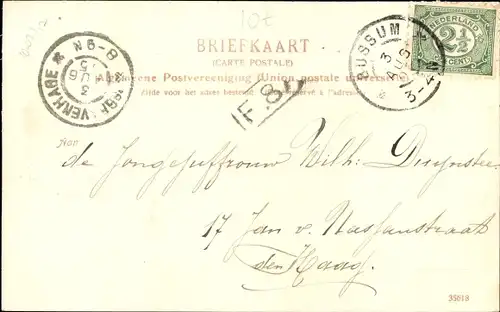 10t
BRIEFKAART
(CARTE POSTALE)
Algemeene Postvereeniging (Union postale universelle)
Zijde voor het adres bestemd. Côté réservé à l'adresse.
NEDERLAND
2½
CENT
BUSSUM
3 AUG
3-4N
'SGRAVENHAGE
8-9N
3
AUG
F 8
Aan
de Jongejuffrouw Wilh: Duynstee
17 Jan v. Nassaustraat
den Haag.
35618